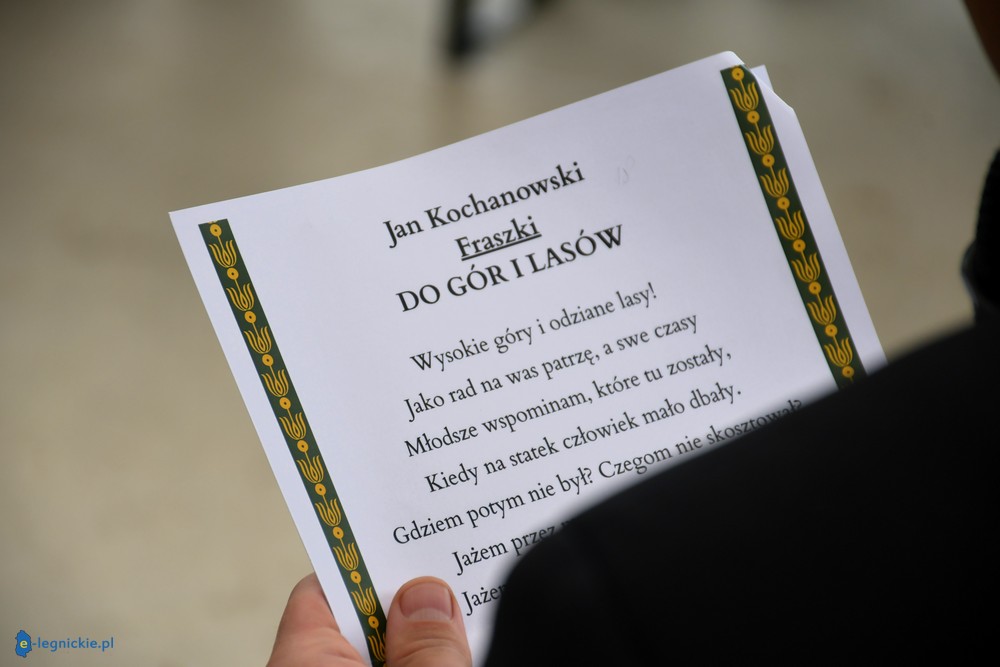 Jan Kochanowski
Fraszki
DO GÓR I LASÓW
Wysokie góry i odziane lasy!
Jako rad na was patrzę, a swe czasy
Młodsze wspominam, które tu zostały,
Kiedy na statek człowiek mało dbały.
Gdziem potym nie był? Czegom nie skosztował?
Jażem przez
e-legnickie.pl